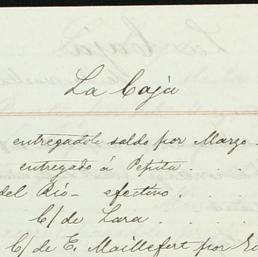 La Caja
entregadole saldo por Marzo
entregado á Pepita . .
del Rio - efectivo . .
C/ de Lara . . . .
C/ de E. Maillefert por